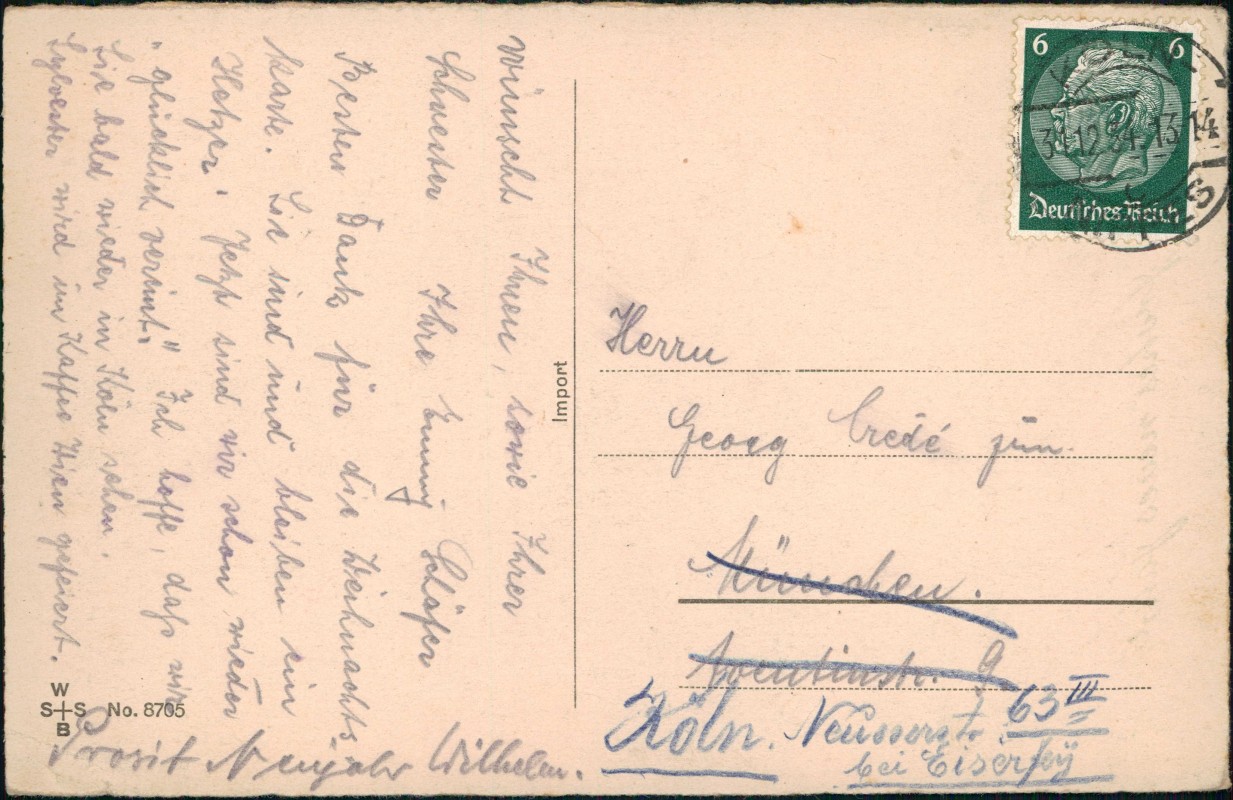 Wünscht Ihnen, sowie Ihrer
Schwester Ihre Emmy Schäfer
Besten Dank für die Weihnachts-
karte. Sie sind und bleiben ein
Hetzer. Jetzt sind wir schon wieder
„glücklich vereint." Ich hoffe, daß wir
Sie bald wieder in Köln sehen.
Sylvester wird im Kaffee Wien gefeiert.
Prosit Neujahr Wilhelm.
W
S S No. 8705
B
Import
6 6
Deutsches Reich
KOELN
31.12.34.13-14
Herrn
Georg Credé jun.
München.
Aventinstr. 9
Köln. Neusserstr. 63 III
bei Eiserfey